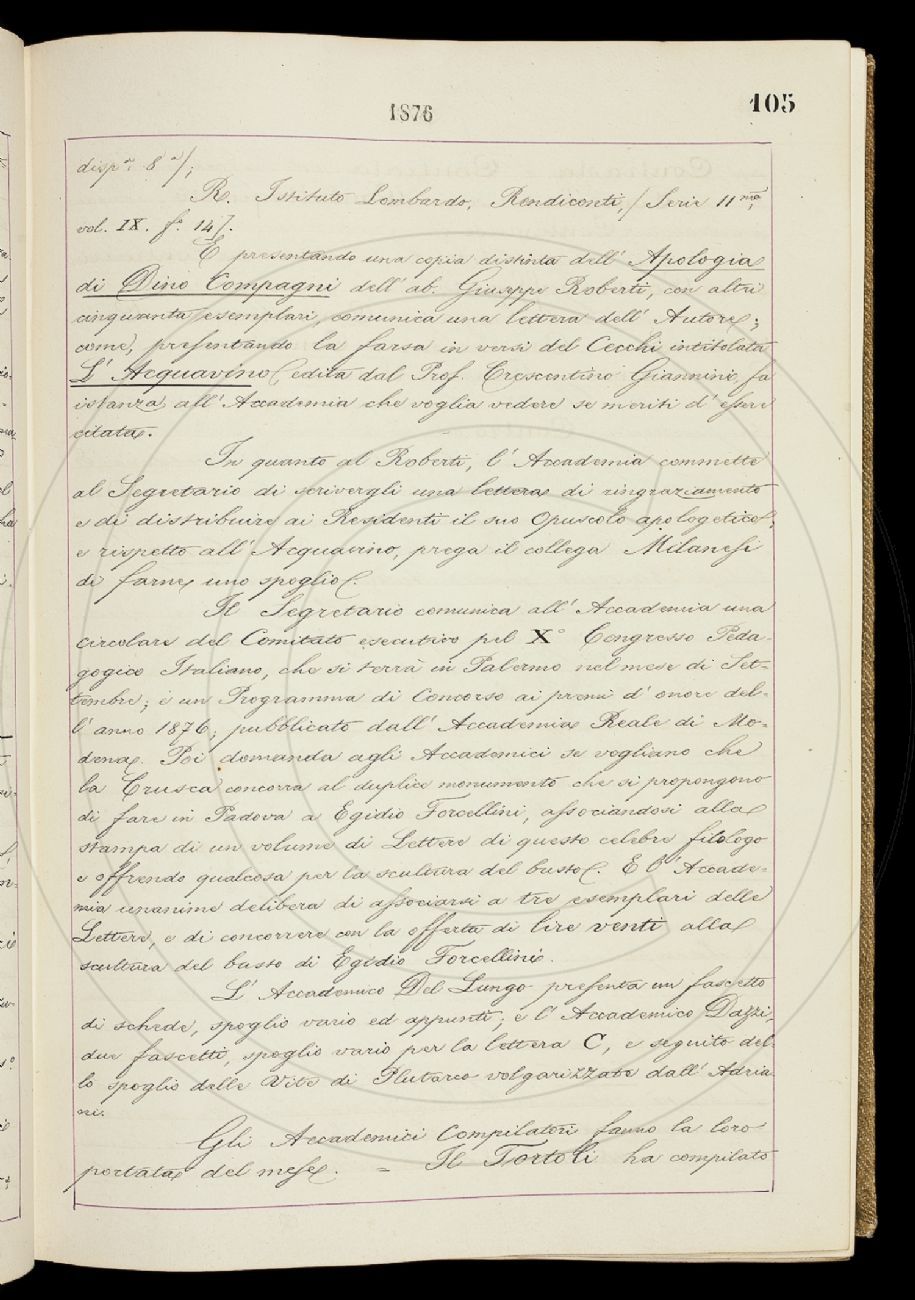 1876
105
disp.ª 8ª);
R. Istituto Lombardo, Rendiconti, (Serie IIma,
vol. IX. f.º 14).
E presentando una copia distinta dell' Apologia
di Dino Compagni dell' ab. Giuseppe Roberti, con altri
cinquanta esemplari, comunica una lettera dell' Autore;
come, presentando la farsa in versi del Cecchi intitolata
L' Acquavino (edita dal Prof. Crescentino Giannini, fa
istanza all' Accademia che voglia vedere se meriti d' essere
citata.
In quanto al Roberti, l' Accademia commette
al Segretario di scrivergli una lettera di ringraziamento
e di distribuire ai Residenti il suo Opuscolo apologetico;
e rispetto all' Acquavino, prega il collega Milanesi
di farne uno spoglio.
Il Segretario comunica all' Accademia una
circolare del Comitato esecutivo pel Xº Congresso Peda-
gogico Italiano, che si terrà in Palermo nel mese di Set-
tembre; e un Programma di Concorso ai premi d' onore del-
l' anno 1876, pubblicato dall' Accademia Reale di Mo-
dena. Poi domanda agli Accademici se vogliano che
la Crusca concorra al duplice monumento che si propongono
di fare in Padova a Egidio Forcellini, associandosi alla
stampa di un volume di Lettere di questo celebre filologo
e offrendo qualcosa per la scultura del busto. E l' Accade-
mia unanime delibera di associarsi a tre esemplari delle
Lettere, e di concorrere con la offerta di lire venti alla
scultura del busto di Egidio Forcellini.
L' Accademico Del Lungo presenta un fascetto
di schede, spoglio vario ed appunti; e l' Accademico Dazzi,
due fascetti, spoglio vario per la lettera C, e seguito del-
lo spoglio delle Vite di Plutarco volgarizzate dall' Adria-
ni.
Gli Accademici Compilatori fanno la loro
portata del mese. = Il Tortoli ha compilato